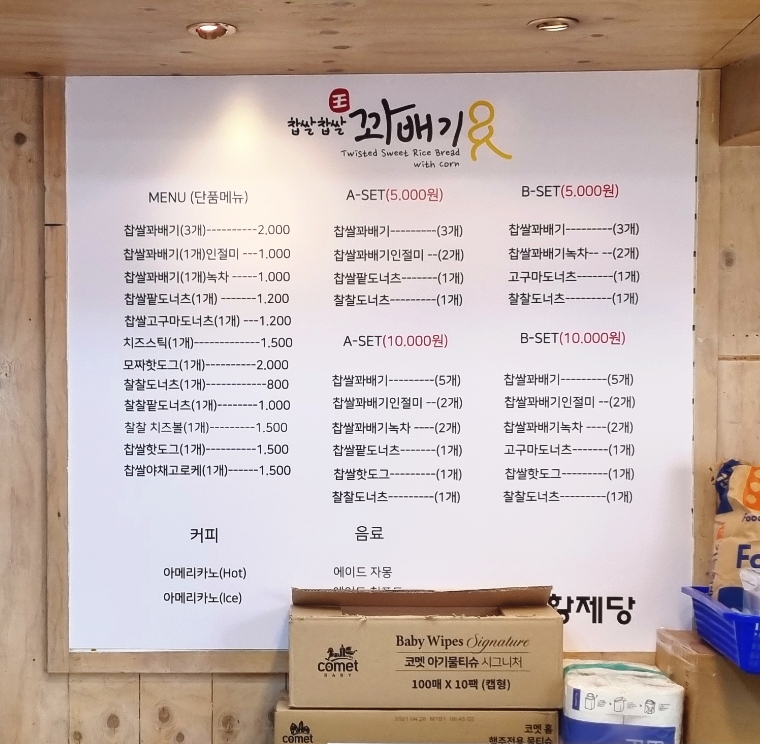 王
찹쌀찹쌀 꽈배기
Twisted Sweet Rice Bread
with corn
MENU (단품메뉴)
찹쌀꽈배기(3개)----------2,000
찹쌀꽈배기(1개)인절미 ---1.000
찹쌀꽈배기(1개)녹차 -----1.000
찹쌀팥도너츠(1개) -------1.200
찹쌀고구마도너츠(1개) ---1.200
치즈스틱(1개)-------------1.500
모짜핫도그(1개)----------2,000
찰찰도너츠(1개)-----------800
찰찰팥도너츠(1개)--------1.000
찰찰 치즈볼(1개)---------1.500
찹쌀핫도그(1개)----------1,500
찹쌀야채고로케(1개)------1.500
A-SET(5.000원)
찹쌀꽈배기---------(3개)
찹쌀꽈배기인절미 --(2개)
찹쌀팥도너츠-------(1개)
찰찰도너츠---------(1개)
B-SET(5.000원)
찹쌀꽈배기---------(3개)
찹쌀꽈배기녹차-- --(2개)
고구마도너츠-------(1개)
찰찰도너츠---------(1개)
A-SET(10.000원)
찹쌀꽈배기---------(5개)
찹쌀꽈배기인절미 --(2개)
찹쌀꽈배기녹차 ----(2개)
찹쌀팥도너츠-------(1개)
찹쌀핫도그---------(1개)
찰찰도너츠---------(1개)
B-SET(10.000원)
찹쌀꽈배기---------(5개)
찹쌀꽈배기인절미 --(2개)
찹쌀꽈배기녹차 ----(2개)
고구마도너츠-------(1개)
찹쌀핫도그---------(1개)
찰찰도너츠---------(1개)
커피
아메리카노(Hot)
아메리카노(Ice)
음료
에이드 자몽
황제당
Baby Wipes Signature
코멧 아기물티슈 시그니처
100매 X 10팩 (캡형)
comet
BABY
코멧 홈
행주전용 물티슈
comet